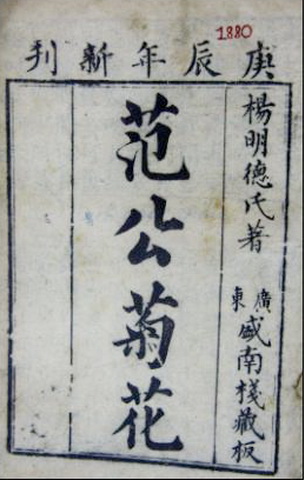 1880
庚辰年新刊
楊明德氏著
廣東盛南棧藏板
范公菊花